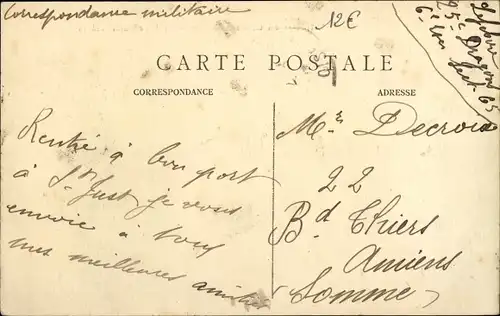 Correspondance militaire
12€
25e Dragons
CARTE POSTALE
CORRESPONDANCE
ADRESSE
Rentré à bon port
à St Just je vous
envoie à tous
mes meilleures amitiés
Mr Decroix
22
Bd Thiers
Amiens
Somme